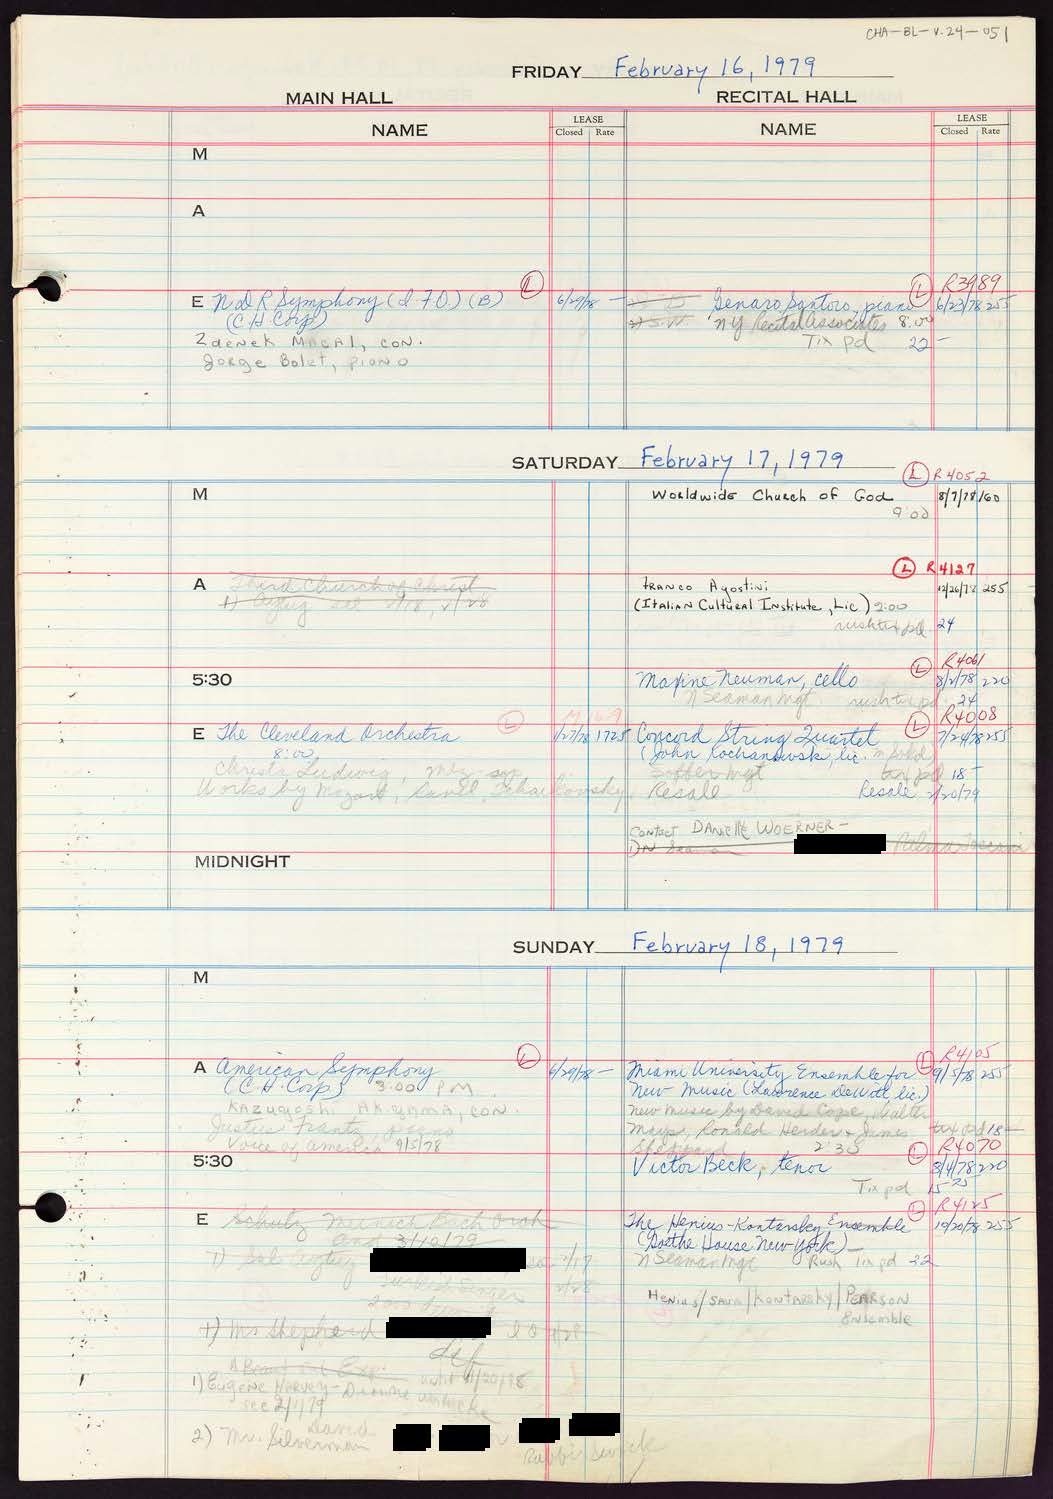 CHA-BL-V.24-051
FRIDAY February 16, 1979
MAIN HALL
RECITAL HALL
NAME
LEASE
Closed Rate
NAME
LEASE
Closed Rate
M
A
L
E NdR Symphony (d 70) (B) 6/29/78 -
(CH Corp)
Zdenek Macal, con.
Jorge Bolet, piano
L R3989
Genaro Santoro, piano 6/23/78 255
NY Recital Associates 8:00
Tix pd 22 -
SATURDAY February 17, 1979
M
L R4052
Worldwide Church of God 8/7/78 160
9:00
A Third Church of Christ
L R4127
Franco Agostini 12/26/78 255
(Italian Cultural Institute, Lic) 2:00
rush tix pd. 24
5:30
L R4061
Maxine Neuman, cello 8/2/78 220
N Seaman Mgt rush tix pd. 24
E The Cleveland Orchestra L 1725
8:00
Christa Ludwig, mez. sop
Works by Mozart, Ravel, Tchaikovsky
L R4008
Concord String Quartet 7/24/78 255
(John Kochanowski, lic.
Soffer Mgt tix pd 18 -
Resale Resale 2/20/79
Contact Danielle Woerner -
MIDNIGHT
SUNDAY February 18, 1979
M
A American Symphony L 6/29/78 -
(CH Corp) 3:00 PM
Kazuyoshi Akiyama, con.
Justus Frantz, piano
Voice of America 9/5/78
L R4105
Miami University Ensemble for 9/5/78 255
New Music (Lawrence DeWitt, lic.)
New music by David Cope, Walter
Mays, Ronald Herder & James tix pd 18 -
Sheppard 2:30
5:30
L R4070
Victor Beck, tenor 8/4/78 220
Tix pd 15 75
E Schutz Munich Bach Orch
and 3/10/79
L R4125
The Henius-Kontarsky Ensemble 10/20/78 255
(Goethe House New York) -
N Seaman Mgt Rush Tix pd 32
Henius/Sava/Kontarsky/Pearson
Ensemble
1) Mr Shepherd
1) Eugene Harvey - Dionne Warwicke
see 2/1/79
2) Mr. Silverman David